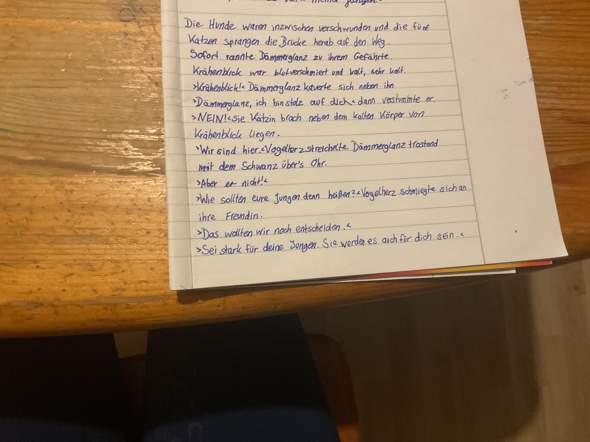 meine Jungen.
Die Hunde waren inzwischen verschwunden und die fünf
Katzen sprangen die Brücke herab auf den Weg.
Sofort rannte Dämmerglanz zu ihrem Gefährte.
Krähenblick war blutverschmiert und kalt, sehr kalt.
>Krähenblick!< Dämmerglanz kauerte sich neben ihn
>Dämmerglanz, ich bin stolz auf dich< dann verstimmte er.
>NEIN!< sie Kätzin brach neben dem kalten Körper von
Krähenblick liegen.
>Wir sind hier.< Vogelherz streichelte Dämmerglanz tröstend
mit dem Schwanz über's Ohr.
>Aber er nicht!<
>Wie sollten eure Jungen denn heißen?< Vogelherz schmiegte sich an
ihre Freundin.
>Das wollten wir noch entscheiden.<
>Sei stark für deine Jungen. Sie werden es auch für dich sein.<